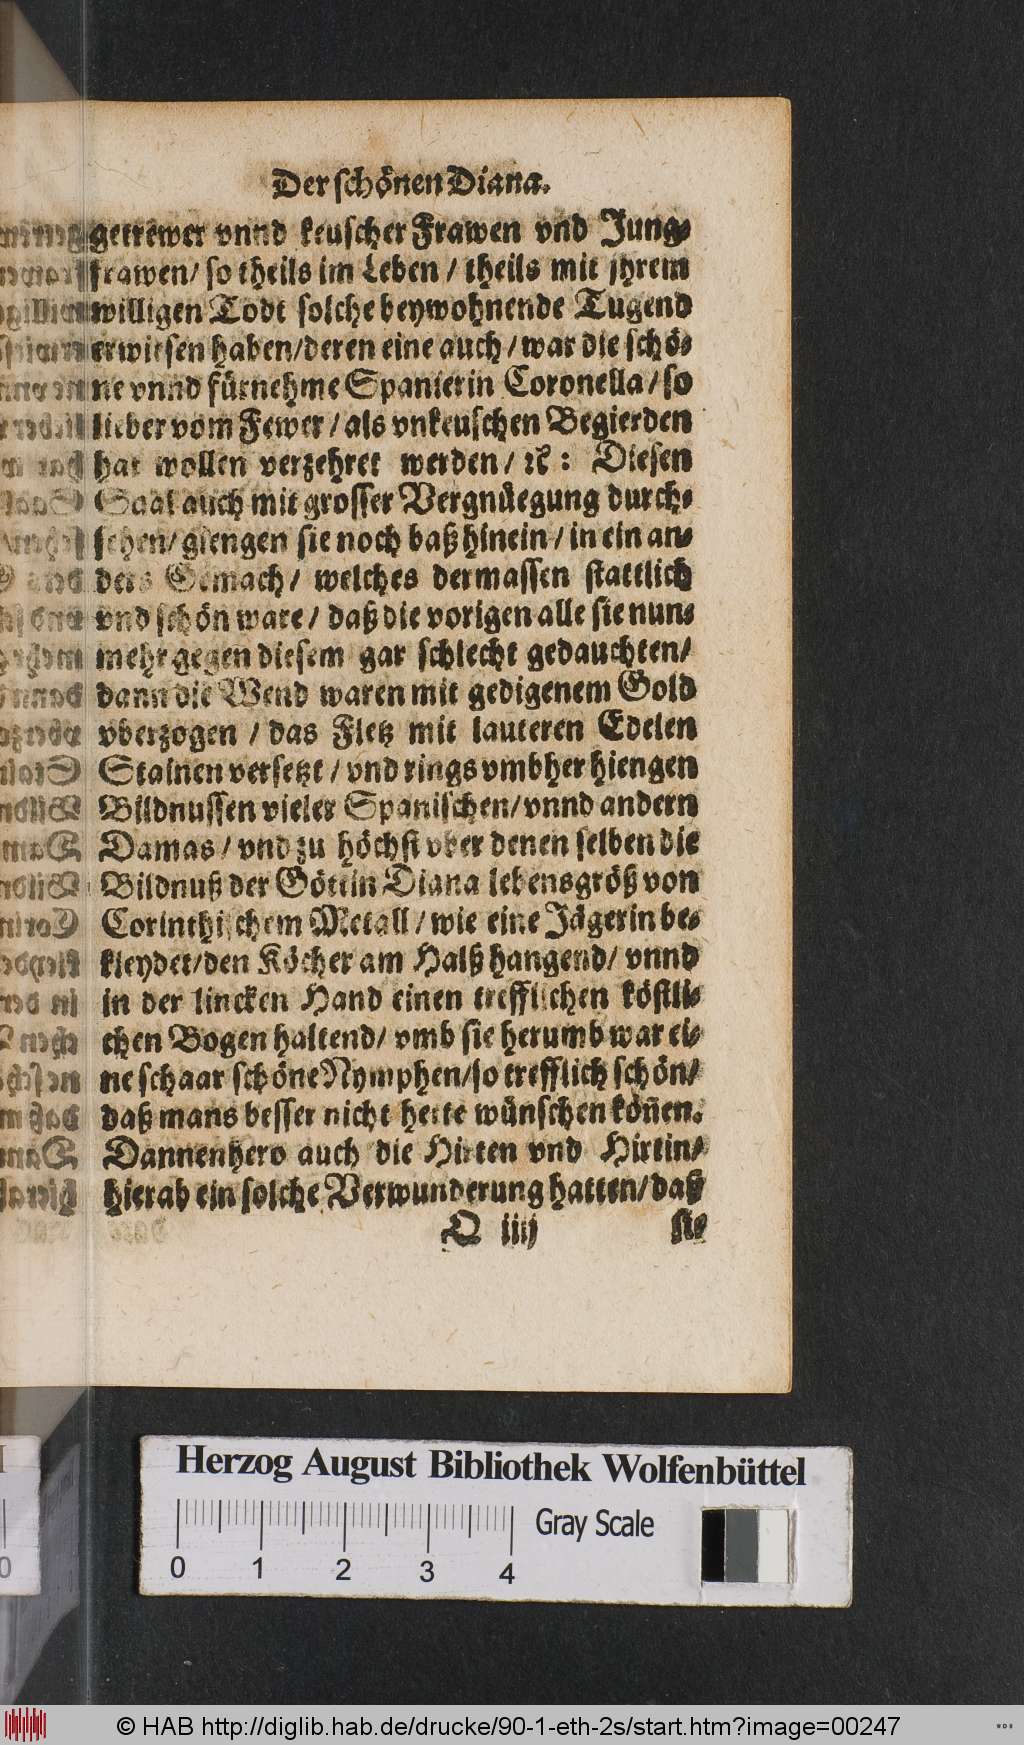 Der schönen Diana.
getrëwer vnnd keuscher Frawen vnd Jung⸗
frawen/ so theils im Leben / theils mit jhrem
willigen Todt solche beywohnende Tugend
erwiesen haben/deren eine auch / war die schö⸗
ne vnnd fürnehme Spanierin Coronella / so
lieber vom Fewer / als vnkeuschen Begierden
hat wollen verzehret werden / ꝛc : Diesen
Saal auch mit grosser Vergnüegung durch⸗
sehen/ giengen sie noch baß hinein / in ein an⸗
ders Gemach / welches dermassen stattlich
vnd schön ware / daß die vorigen alle sie nun⸗
mehr gegen diesem gar schlecht gedauchten/
dann die Wend waren mit gedigenem Gold
vberzogen / das Fletz mit lauteren Edelen
Stainen versetzt / vnd rings vmbher hiengen
Bildnussen vieler Spanischen/ vnnd andern
Damas / vnd zu höchst vber denen selben die
Bildnuß der Göttin Diana lebensgröß von
Corinthischem Metall / wie eine Jägerin be⸗
kleydet/den Köcher am Halß hangend/ vnnd
in der lincken Hand einen trefflichen köstli⸗
chen Bogen haltend/ vmb sie herumb war ei⸗
ne schaar schöne Nymphen/so trefflich schön/
daß mans besser nicht hette wünschen köñen.
Dannenhero auch die Hirten vnd Hirtin/
hierab ein solche Verwunderung hatten/daß
Q iiij sie
Herzog August Bibliothek Wolfenbüttel
Gray Scale
0 1 2 3 4
© HAB http://diglib.hab.de/drucke/90-1-eth-2s/start.htm?image=00247